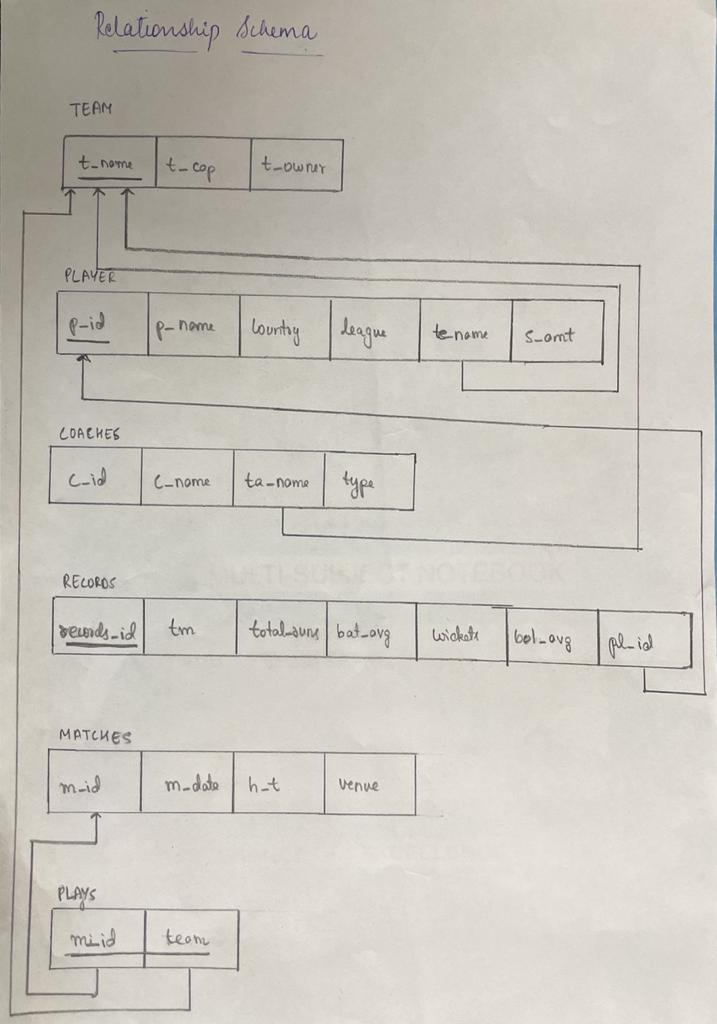 Relationship Schema
TEAM
t_name t_cap t_owner
PLAYER
p_id p_name Country league te_name s_amt
COACHES
c_id c_name ta_name type
MULTI-SUBJECT NOTEBOOK
RECORDS
records_id tm total_runs bat_avg wickets bol_avg pl_id
MATCHES
m_id m_date h_t venue
PLAYS
mi_id team